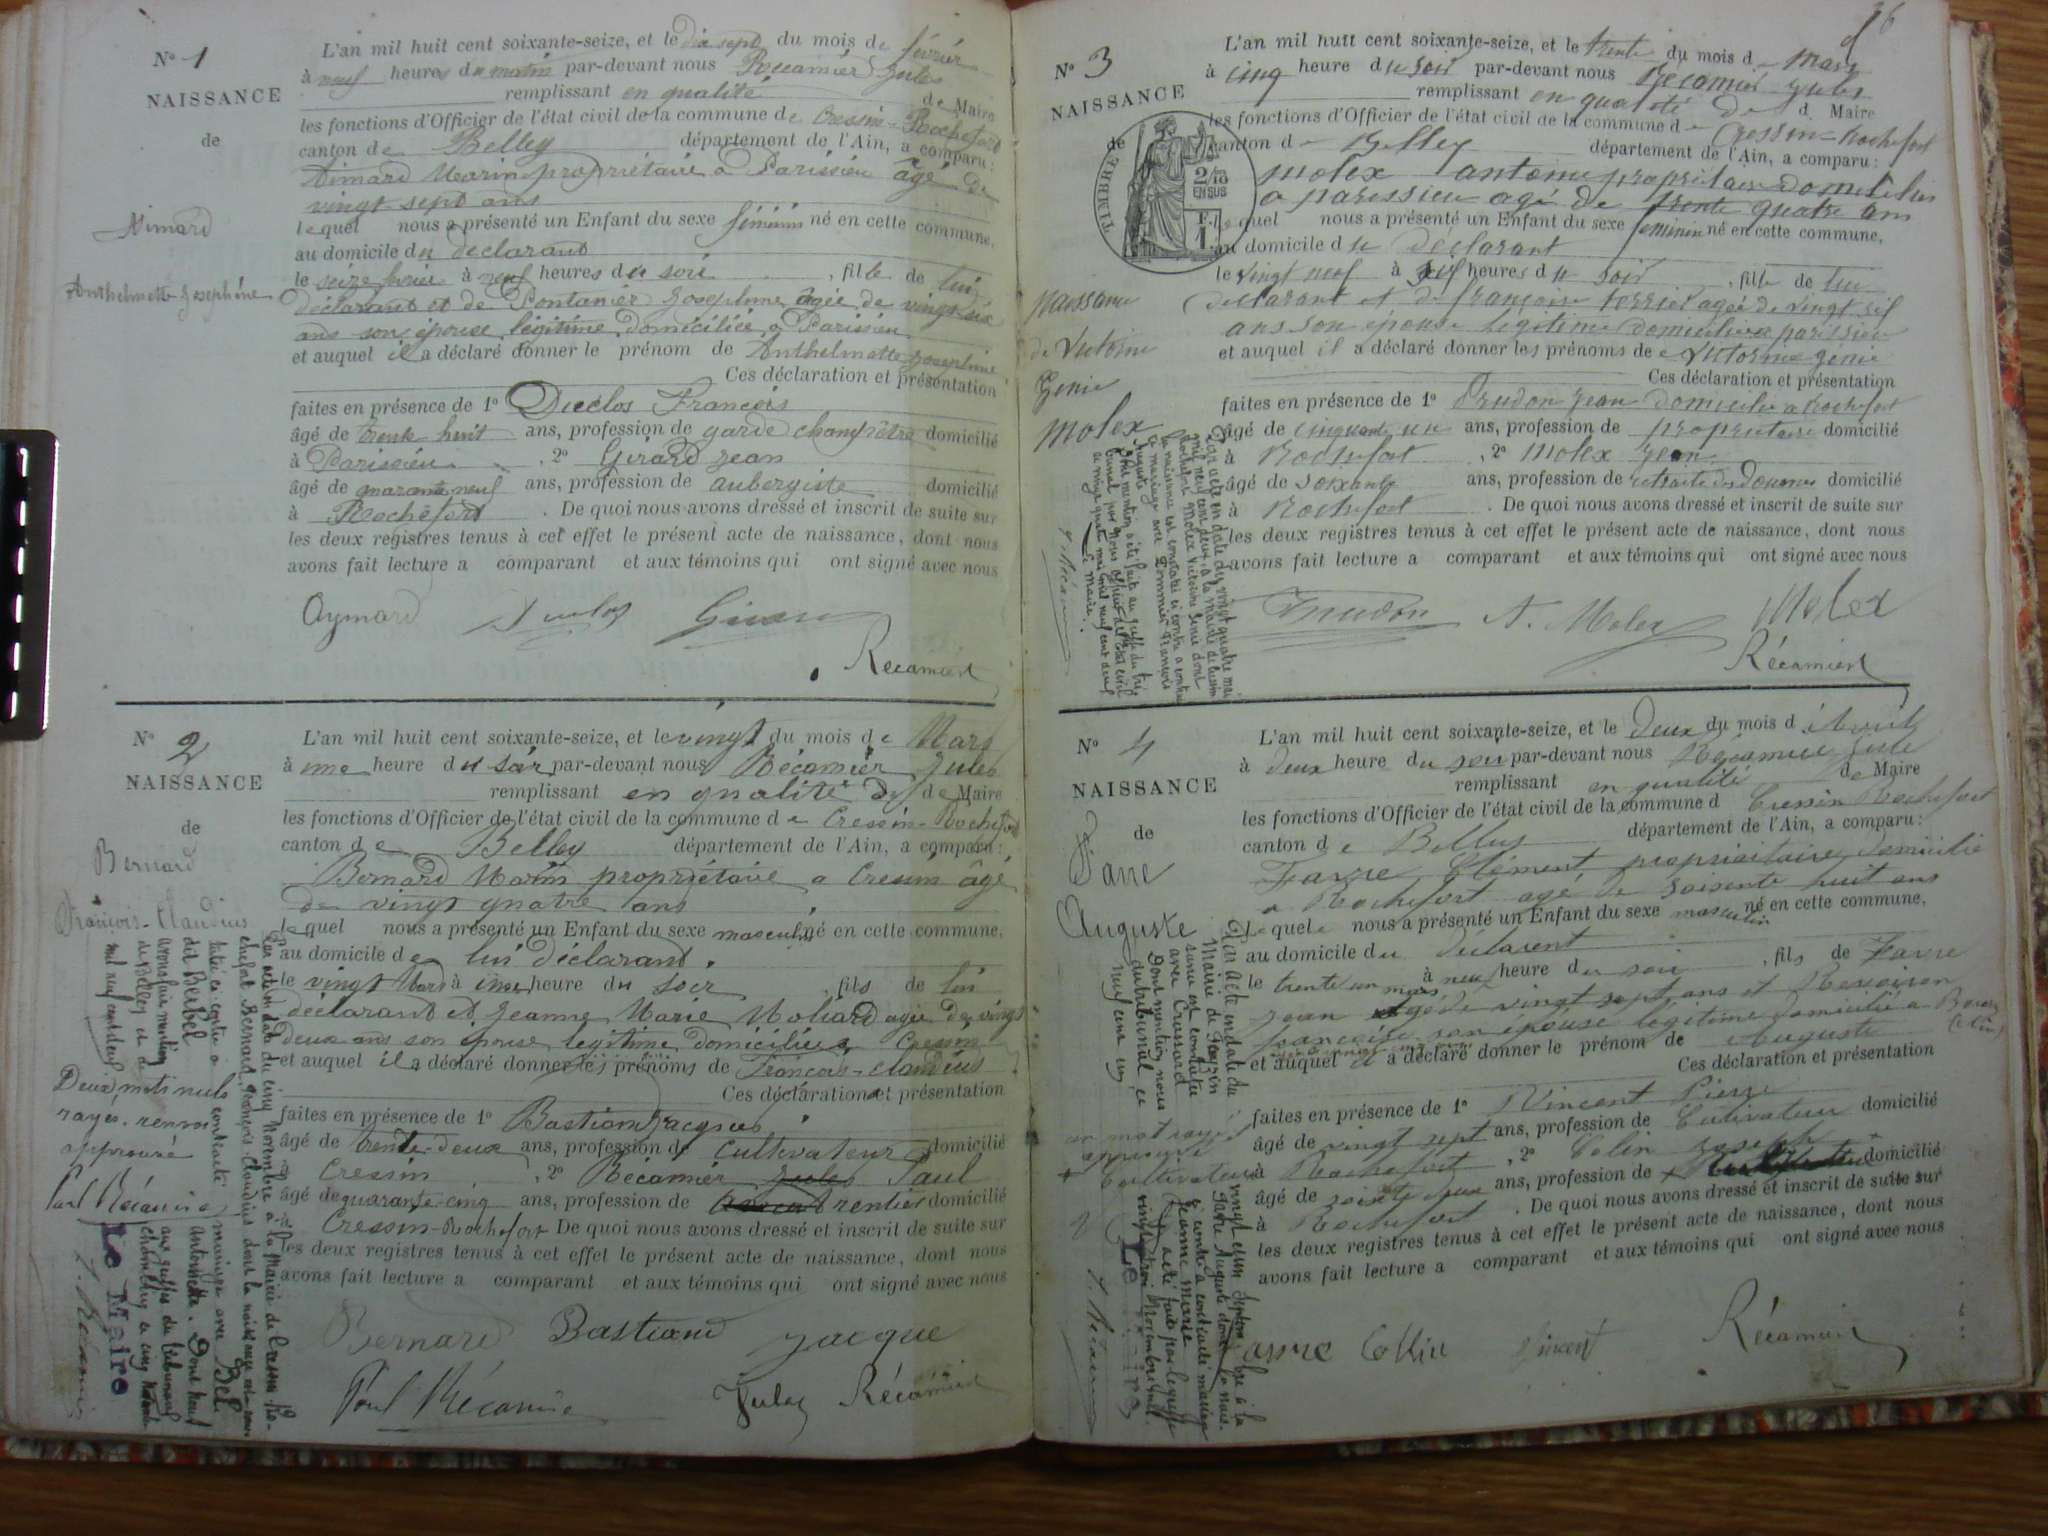 N° 1
NAISSANCE
de
Aimard
Anthelmette Josephine
L'an mil huit cent soixante-seize, et le dix sept du mois de février
à neuf heures du matin par-devant nous Récamier Jules
remplissant en qualité de Maire
les fonctions d'Officier de l'état civil de la commune de Cressin-Rochefort
canton de Belley département de l'Ain, a comparu:
Aimard Marin propriétaire à Parissieu âgé de
vingt sept ans
lequel nous a présenté un Enfant du sexe féminin né en cette commune,
au domicile du declarant
le seize à neuf heures du soir , fille de lui
déclarant et de Josephine âgée de vingt six
ans son épouse légitime domiciliée à Parissieu
et auquel il a déclaré donner le prénom de Anthelmette Josephine
Ces déclaration et présentation
faites en présence de 1° Duclos François
âgé de trente huit ans, profession de garde champêtre domicilié
à Parissieu , 2° Girard Jean
âgé de quarante neuf ans, profession de aubergiste domicilié
à Rochefort . De quoi nous avons dressé et inscrit de suite sur
les deux registres tenus à cet effet le présent acte de naissance, dont nous
avons fait lecture a comparant et aux témoins qui ont signé avec nous
Aymard Duclos Girard
Récamier
N° 2
NAISSANCE
de
Bernard
François-Claudius
L'an mil huit cent soixante-seize, et le vingt du mois de Mars
à une heure du soir par-devant nous Récamier Jules
remplissant en qualité de de Maire
les fonctions d'Officier de l'état civil de la commune de Cressin-Rochefort
canton de Belley département de l'Ain, a comparu:
Bernard Marin propriétaire a Cressin âgé
de vingt quatre ans
lequel nous a présenté un Enfant du sexe masculin né en cette commune,
au domicile de lui déclarant.
le vingt Mars à une heure du soir , fils de lui
déclarant et Jeanne Marie agée de vingt
deux ans son épouse légitime domiciliée a Cressin
et auquel il a déclaré donner les prénoms de François-claudius
Ces déclaration et présentation
faites en présence de 1° Bastian Jacques
âgé de trente-deux ans, profession de cultivateur domicilié
à Cressin , 2° Récamier Jules Paul
âgé de quarante-cinq ans, profession de rentier domicilié
à Cressin-Rochefort De quoi nous avons dressé et inscrit de suite sur
les deux registres tenus à cet effet le présent acte de naissance, dont nous
avons fait lecture a comparant et aux témoins qui ont signé avec nous
Bernard Bastiand Jacque
Paul Récamier Jules Récamier
Par acte en date du cinq Novembre à la Mairie de Cressin Ro-
chefort Bernard François Claudius dont la naissance est cons-
tatée ci contre a contracté mariage avec Bel
dit Berbel Antoinette. Dont nous
avons fait mention aux greffes du tribunal
de Belley et de Chambéry ce cinq Novembre
mil neuf cent deux
Deux mots nuls
rayés. renvoi
approuvé
Paul Récamier
Le Maire
J. Récamier
36
N° 3
NAISSANCE
de
TIMBRE
2/10
EN SUS
F. 1
naissance
de Victorine
Génie
Molex
L'an mil huit cent soixante-seize, et le trente du mois d Mars
à cinq heure du soir par-devant nous Récamier Jules
remplissant en qualité de d Maire
les fonctions d'Officier de l'état civil de la commune de Cressin-Rochefort
canton de Belley département de l'Ain, a comparu:
Molex antoine propriétaire domicilié
a parissieu agé de trente quatre ans
lequel nous a présenté un Enfant du sexe feminin né en cette commune,
au domicile du déclarant
le vingt neuf à heures du soir , fille de lui
declarant et de françoise agée de vingt
ans son épouse légitime domiciliée a parissieu
et auquel il a déclaré donner les prénoms de Victorine génie
Ces déclaration et présentation
faites en présence de 1° Prudon Jean domicilié a Rochefort
âgé de cinquante un ans, profession de propriétaire domicilié
à Rochefort , 2° Molex Jean
âgé de soixante ans, profession de retraité des Douanes domicilié
à Rochefort . De quoi nous avons dressé et inscrit de suite sur
les deux registres tenus à cet effet le présent acte de naissance, dont nous
avons fait lecture a comparant et aux témoins qui ont signé avec nous
Prudon A. Molex Molex
Récamier
Par acte en date du vingt quatre mai
mil neuf cent deux à la mairie de Cressin
Rochefort Molex Victorine Génie dont
la naissance est constatée ci contre a contracté
mariage avec François
Auguste
Dont mention a été faite au greffe du tri-
bunal par nous officier de l'état civil
ce vingt quatre mai mil neuf cent deux
Le Maire.
J. Récamier
N° 4
NAISSANCE
de
Favre
Auguste
L'an mil huit cent soixante-seize, et le Deux du mois d Avril
à deux heure du soir par-devant nous Récamier Jule
remplissant en qualité de Maire
les fonctions d'Officier de l'état civil de la commune d Cressin Rochefort
canton de Belley département de l'Ain, a comparu:
Favre Clément propriaitaire domicilié
a Rochefort age de soisente huit ans
lequel nous a présenté un Enfant du sexe masculin né en cette commune,
au domicile du declarent
le trente un mars à neuf heure du soir , fils de Favre
Jean agé de vingt sept ans et
françoise son épouse légitime domicilié a
et auquel il a déclaré donner le prénom de Auguste
Ces déclaration et présentation
faites en présence de 1° Vincent Pierre
âgé de vingt sept ans, profession de Cultivateur domicilié
à Rochefort , 2° Colin Joseph
âgé de ans, profession de domicilié
à Rochefort . De quoi nous avons dressé et inscrit de suite sur
les deux registres tenus à cet effet le présent acte de naissance, dont nous
avons fait lecture a comparant et aux témoins qui ont signé avec nous
favre Collin Vincent Récamier
Par acte en date du vingt et un Septembre à la
Mairie de Favre Auguste dont la nais-
sance est constatée ci contre a contracté mariage
avec Crussard Jeanne Marie
Dont mention nous a été faite par le greffe
du tribunal ce vingt trois Novembre mil
neuf cent un
un mot rayé
approuvé
Cultivateur
Le Maire
J. Récamier